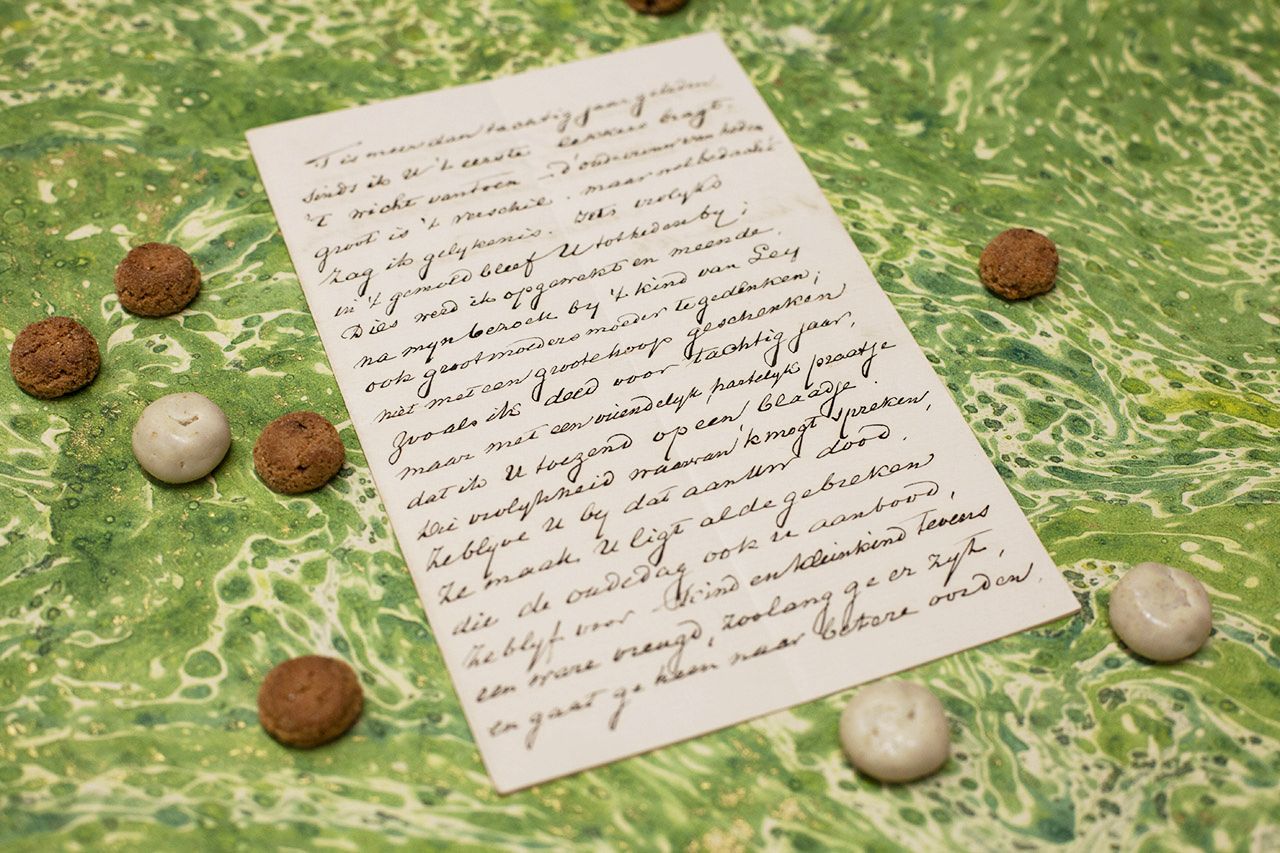 'T is meer dan tachtig jaar geleden
sinds ik U 't eerste lekkers bragt.
'T wicht van toen – d'oude vrouw van heden
groot is 't verschil. maar wel bedacht
zag ik gelykenis. Iets vrolyks
in 't gemoed bleef U tot heden by;
Dies werd ik opgewekt en meende
na myn bezoek by 't kind van Ley
ook grootmoeder te gedenken;
niet met een grootehoop geschenken
zooals ik deed voor tachtig jaar,
maar met een vriendelyk, hartelyk praatje
dat ik U toezend op een blaadje.
Die vrolykheid waarvan 'k mogt spreken,
Ze blyve U by dat aan Uw dood.
Ze maak U ligt al de gebreken
die de oude dag ook U aanbood,
Ze blyf voor kind en kleinkind tevens
een ware vreugd, zoolang ge er zyt,
en gaat ge heen naar betere oorden.